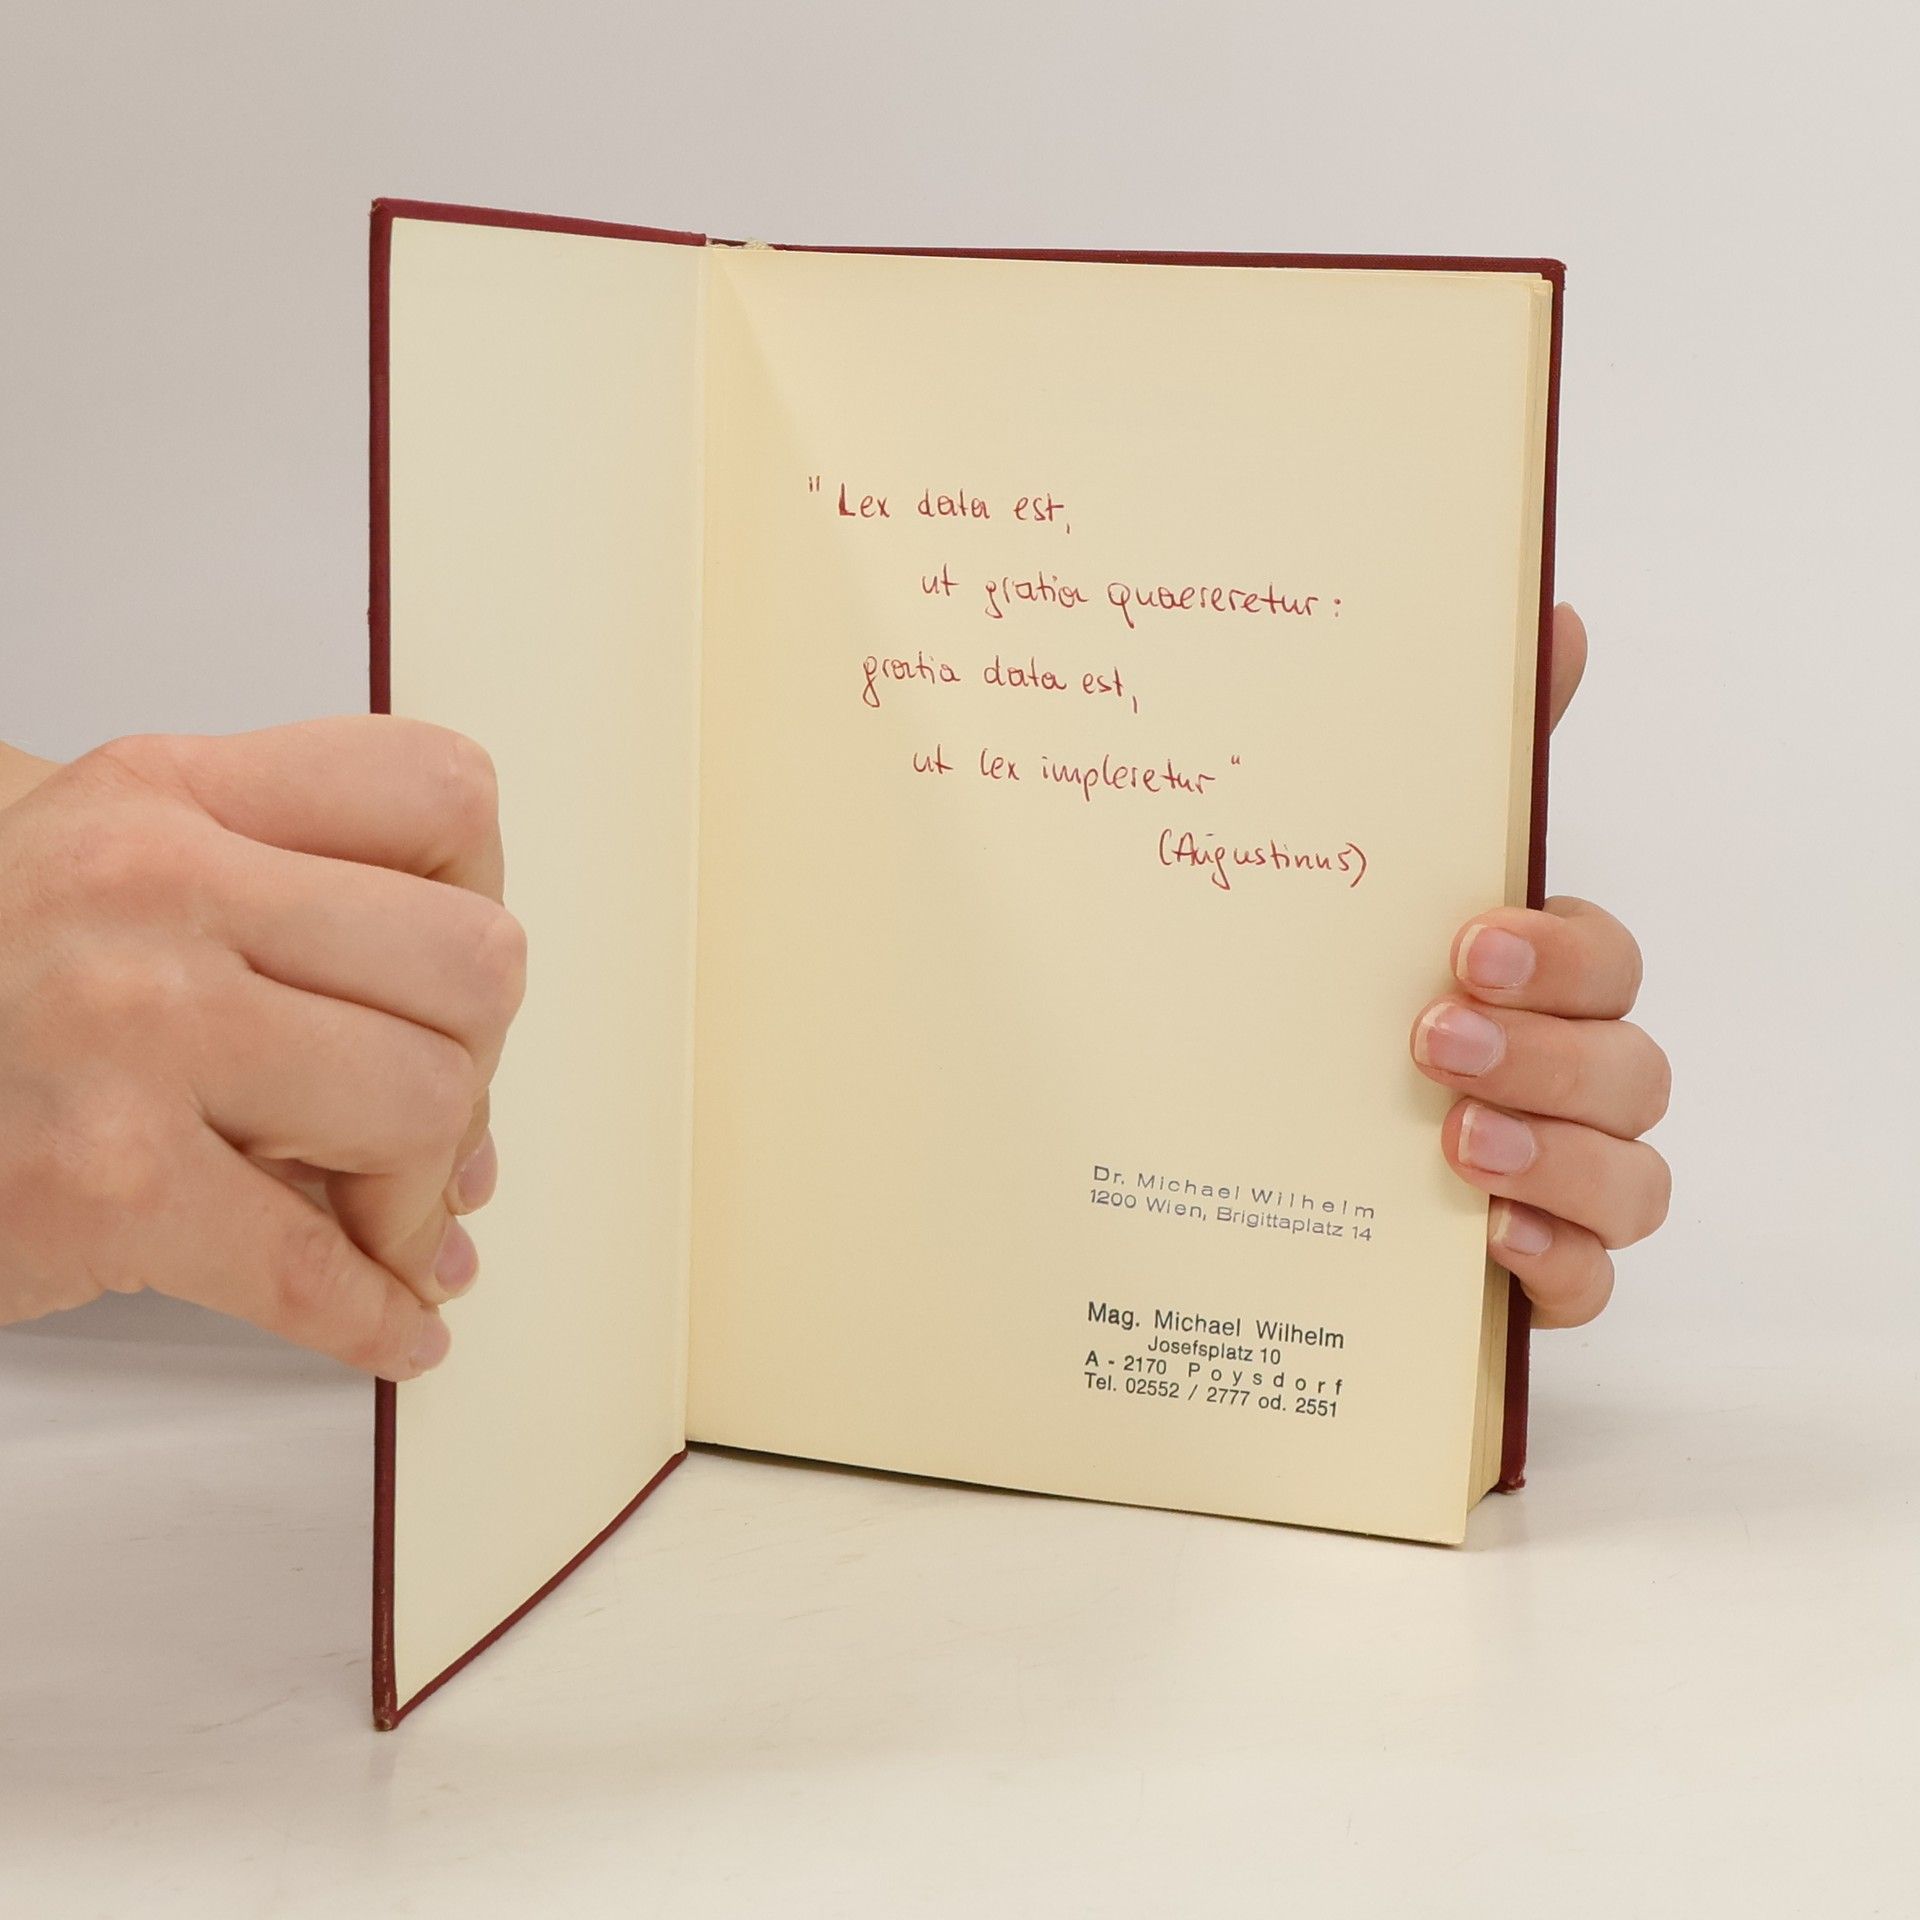 " Lex data est,
ut gratia quaereretur :
gratia data est,
ut lex impleretur "
(Augustinus)
Dr. Michael Wilhelm
1200 Wien, Brigittaplatz 14
Mag. Michael Wilhelm
Josefsplatz 10
A - 2170 Poysdorf
Tel. 02552 / 2777 od. 2551